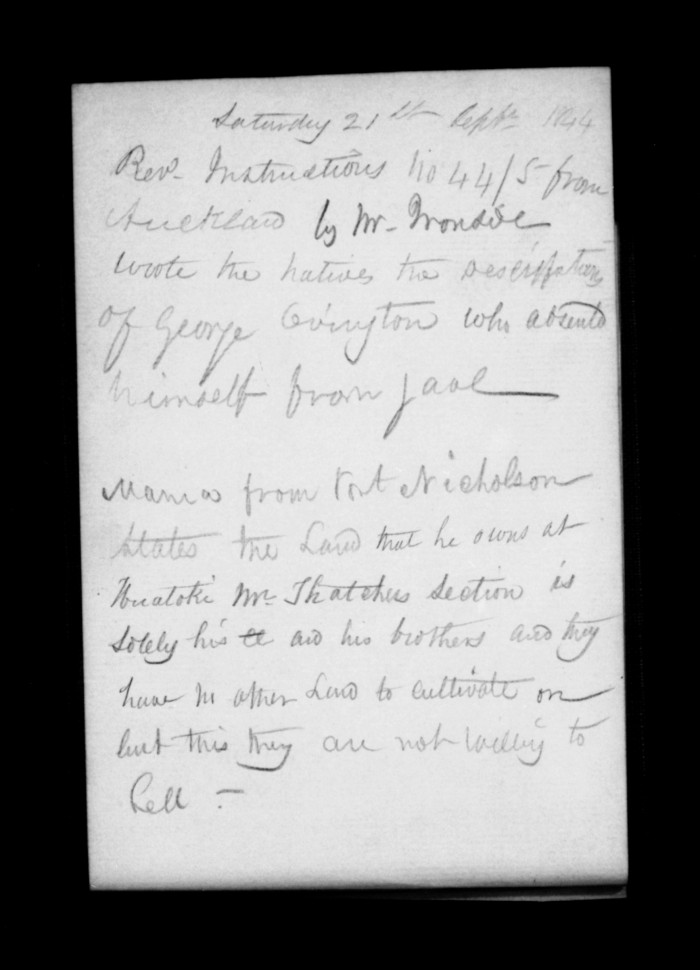 Saturday 21st Sept 1844
Recd. Instructions No 44/5 from
Auckland by Mr. Ironside
wrote the natives the description
of George Ovington who absented
himself from jaol
from Port Nicholson
states the Land that he owns at
Huatoki Mr. Thatchers section is
solely his and his brothers and they
have no other Land to cultivate on
but this they are not willing to
Sell —